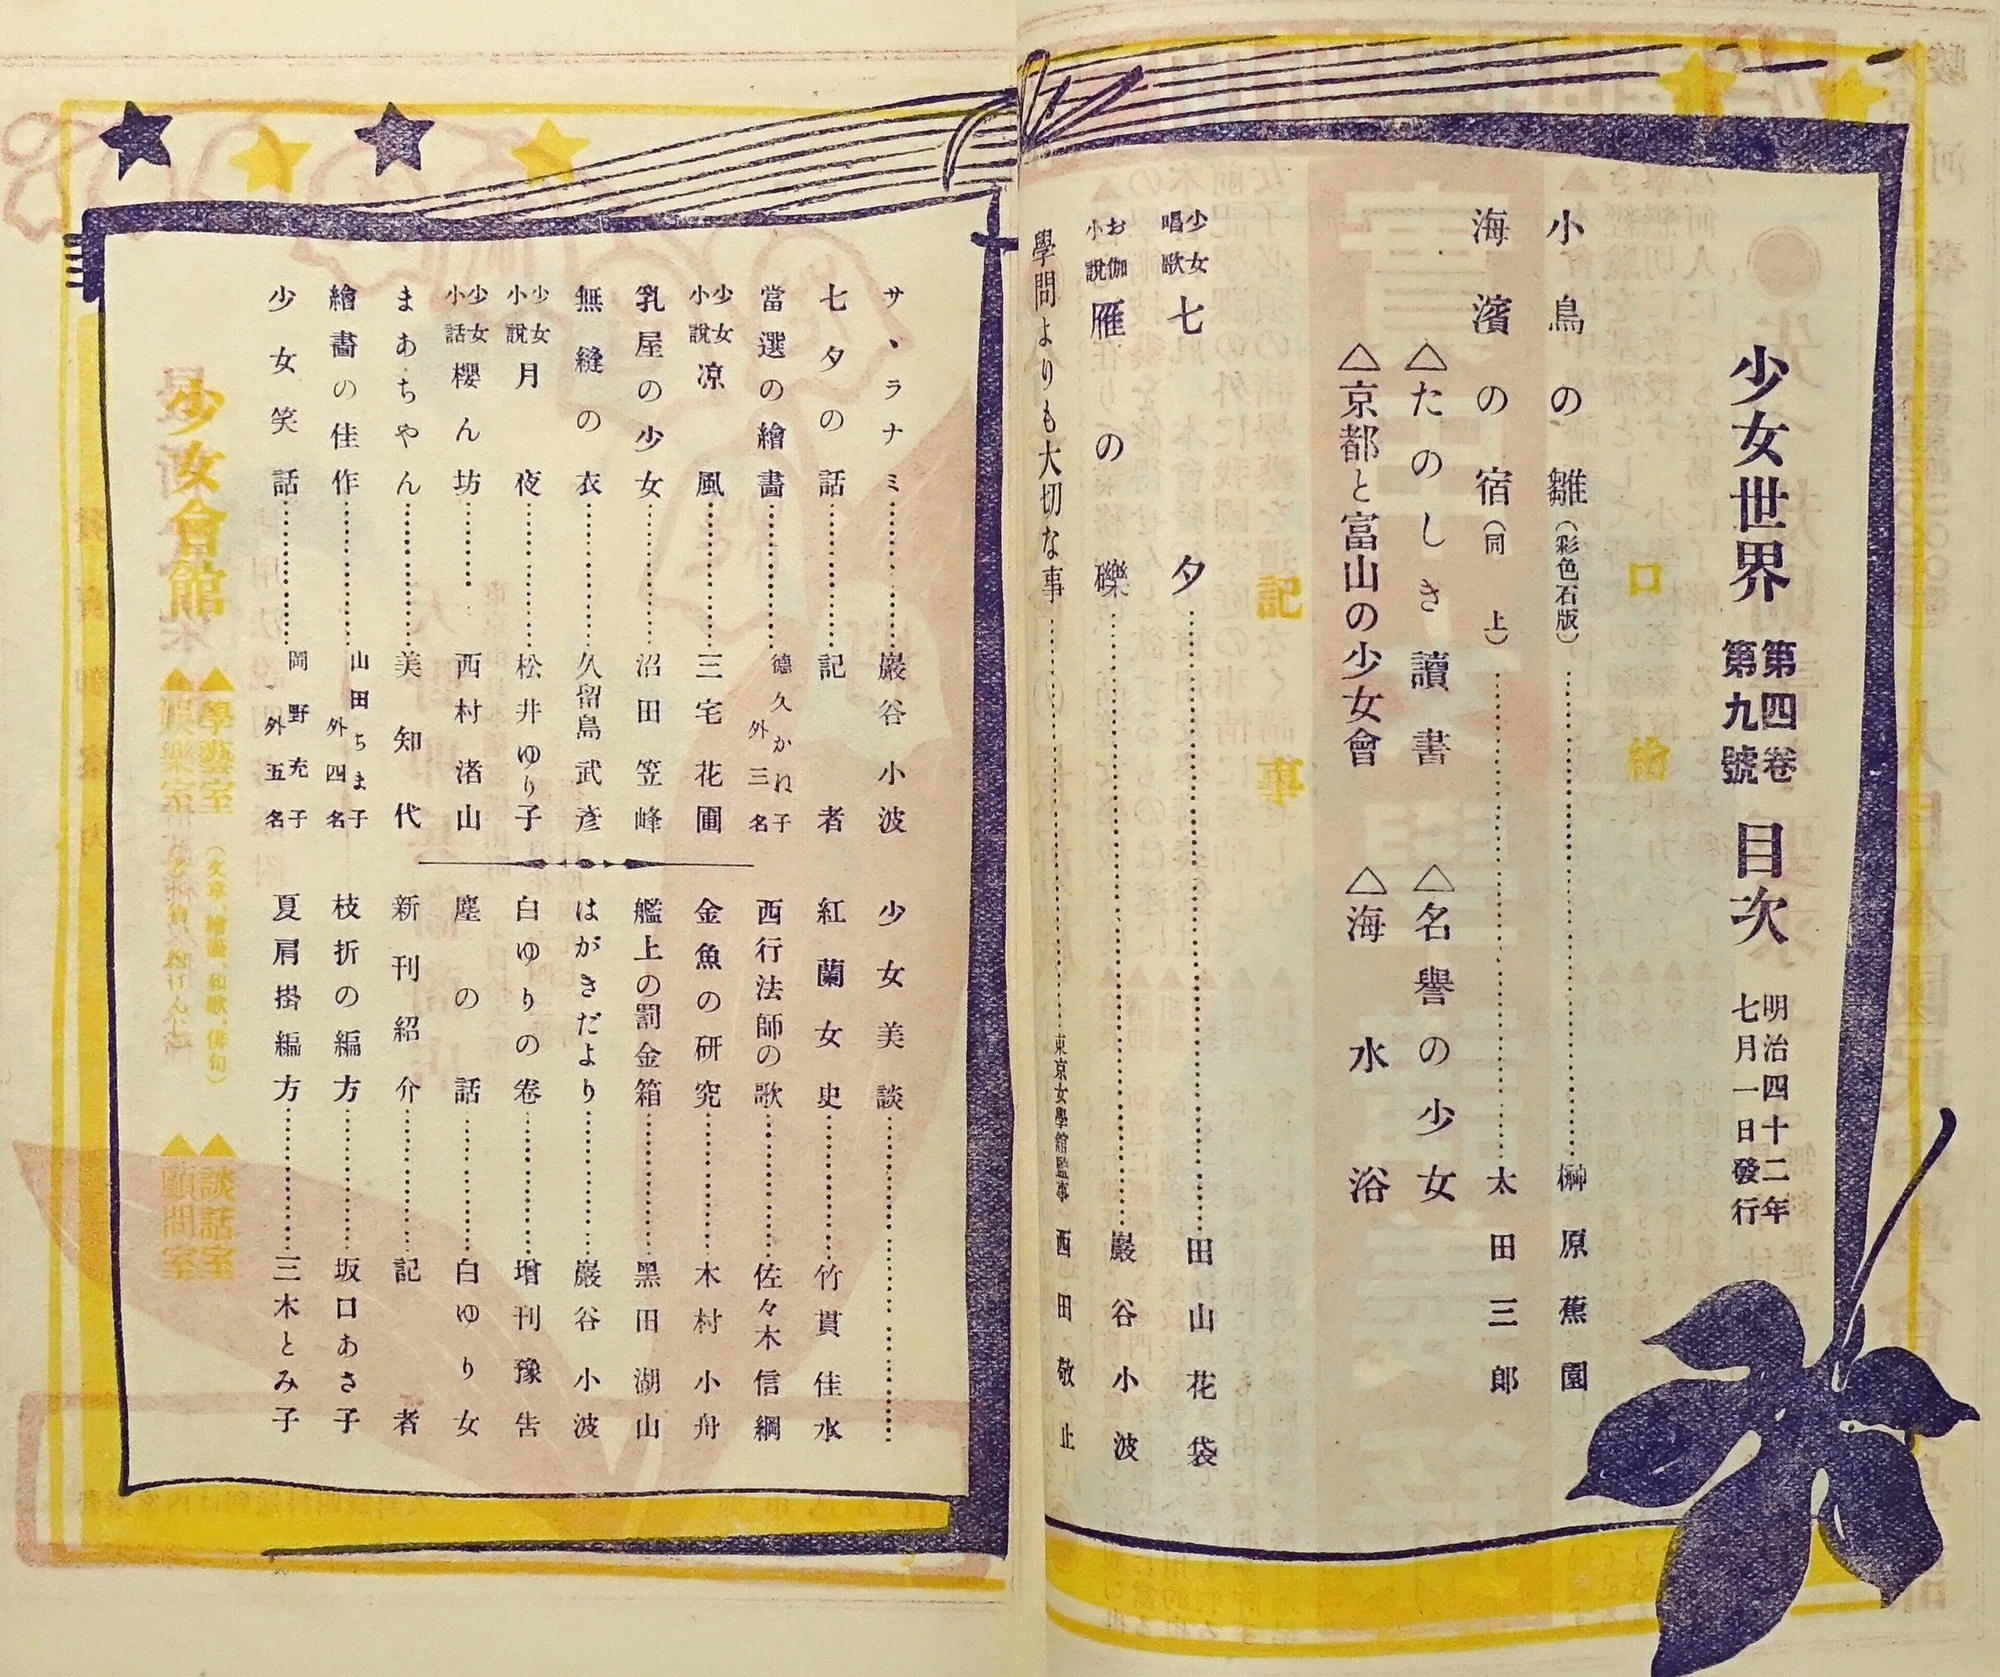 少女世界 第四卷第九號 目次 明治四十二年七月一日發行
口繪
小鳥の雛（彩色石版）……榊原蕉園
海濱の宿（同上）……太田三郎
△たのしき讀書 △名譽の少女
△京都と富山の少女會 △海水浴
記事
少女唱歌 七夕……田山花袋
お伽小說 雁の礫……巖谷小波
學問よりも大切な事……東京女學館監事 西田敬止
サヽラナミ……巖谷小波
七夕の話……記者
當選の繪畵……德久かね子外三名
少女小說 凉風……三宅花圃
乳屋の少女……沼田笠峰
無縫の衣……久留島武彥
少女小說 月夜……松井ゆり子
少女小話 櫻ん坊……西村渚山
まあちやん……美知代
繪畵の佳作……山田ちま子外四名
少女笑話……岡野充子外五名
少女美談……
紅蘭女史……竹貫佳水
西行法師の歌……佐々木信綱
金魚の研究……木村小舟
艦上の罰金箱……黑田湖山
はがきだより……巖谷小波
白ゆりの卷……增刊豫吿
塵の話……白ゆり女
新刊紹介……記者
枝折の編方……坂口あさ子
夏肩掛編方……三木とみ子
少女會館
▲學藝室（文章、繪畵、和歌、俳句）▲談話室
▲娛樂室 ▲顧問室